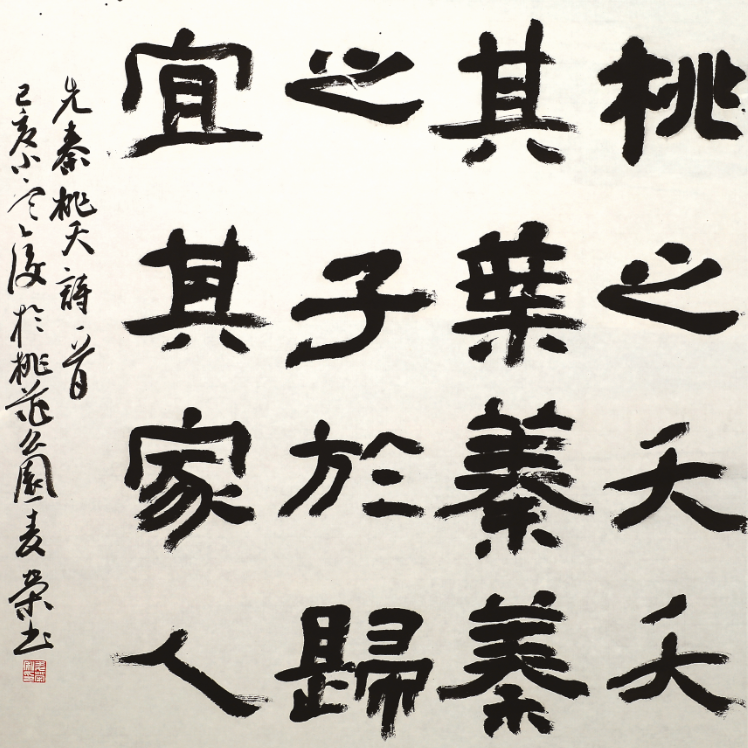 桃之夭夭
其葉蓁蓁
之子於歸
宜其家人
先秦桃夭詩一首
己亥小雪後於桃花公園麦荣书